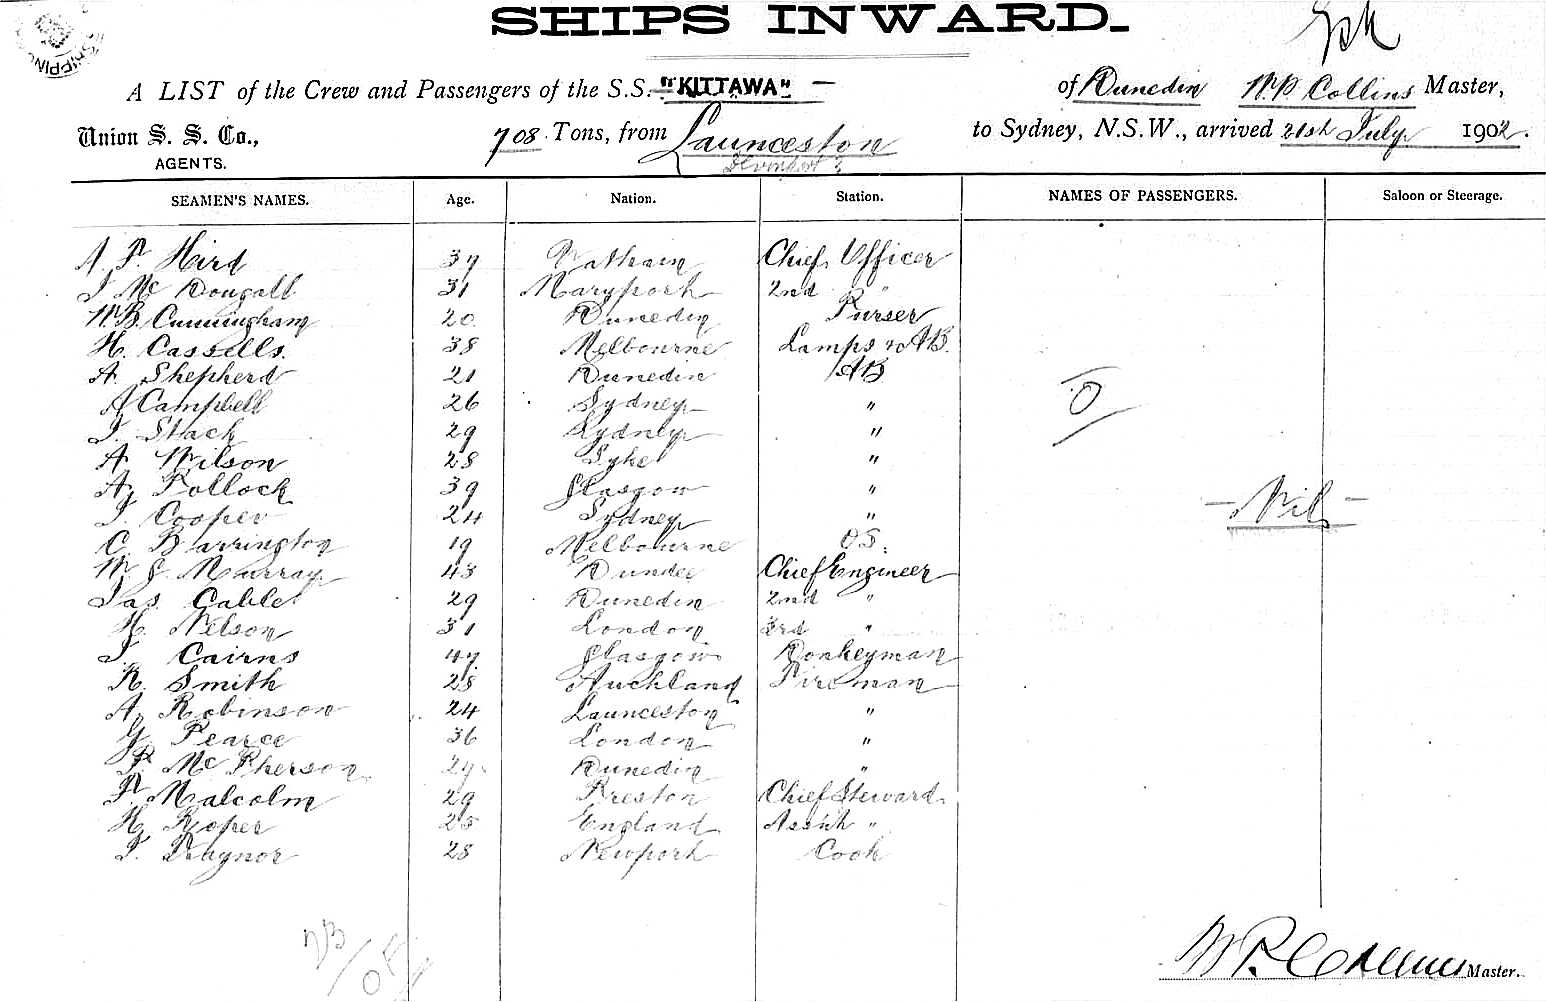 SHIPS INWARD.
SHIPPING
A LIST of the Crew and Passengers of the S.S. "KITTAWA" of Dunedin W.P. Collins Master,
Union S. S. Co., 708 Tons, from Launceston to Sydney, N.S.W., arrived 21st July 1902.
Devonport ?
AGENTS.
SEAMEN'S NAMES. Age. Nation. Station. NAMES OF PASSENGERS. Saloon or Steerage.
Hird 37 Chief Officer
J McDougall 31 Maryport 2nd "
W.B. Cunningham 20 Dunedin Purser
H. Cassells. 38 Melbourne Lamps & AB.
A. Shepherd 21 Dunedin AB
A Campbell 26 Sydney "
J. Stack 29 Sydney "
A Wilson 28 "
A. Pollock 39 Glasgow "
J. Cooper 24 Sydney "
C. Barrington 19 Melbourne OS.
W. J. Murray 43 Dundee Chief Engineer
Jas Cable 29 Dunedin 2nd "
H. Nelson 31 London 3rd "
J. Cairns 47 Glasgow Donkeyman
R. Smith 28 Auckland Fireman
A. Robinson 24 Launceston "
G. Pearce 36 London "
P. McPherson Dunedin "
Malcolm 29 Preston Chief Steward.
H. Roper 25 England Assist "
J. Raynor 28 Newport Cook
O
- Nil -
W P. Collins Master.